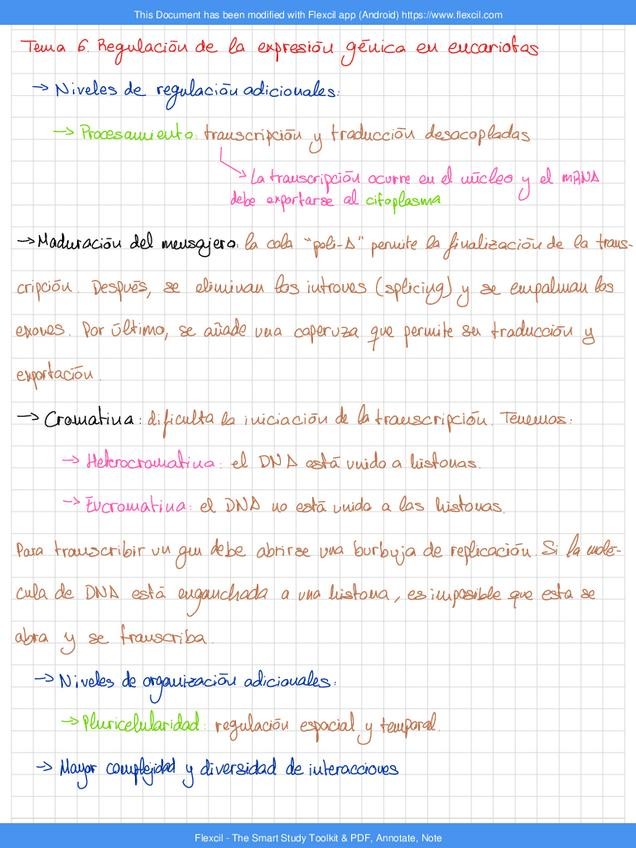 This Document has been modified with Flexcil app (Android) https://www.flexcil.com
Tema 6. Regulación de la expresión génica en eucariotas
→ Niveles de regulación adicionales:
→ Procesamiento: transcripción y traducción desacopladas
↳ La transcripción ocurre en el núcleo y el mRNA
debe exportarse al citoplasma
→ Maduración del mensajero: la cola "poli-A" permite la finalización de la trans-
cripción. Después, se eliminan los intrones (splicing) y se empalman los
exones. Por último, se añade una caperuza que permite su traducción y
exportación.
→ Cromatina: dificulta la iniciación de la transcripción. Tenemos:
→ Heterocromatina: el DNA está unido a histonas.
→ Eucromatina: el DNA no está unido a las histonas.
Para transcribir un gen debe abrirse una burbuja de replicación. Si la molé-
cula de DNA está enganchada a una histona, es imposible que esta se
abra y se transcriba.
→ Niveles de organización adicionales:
→ Pluricelularidad: regulación espacial y temporal.
→ Mayor complejidad y diversidad de interacciones
Flexcil - The Smart Study Toolkit & PDF, Annotate, Note